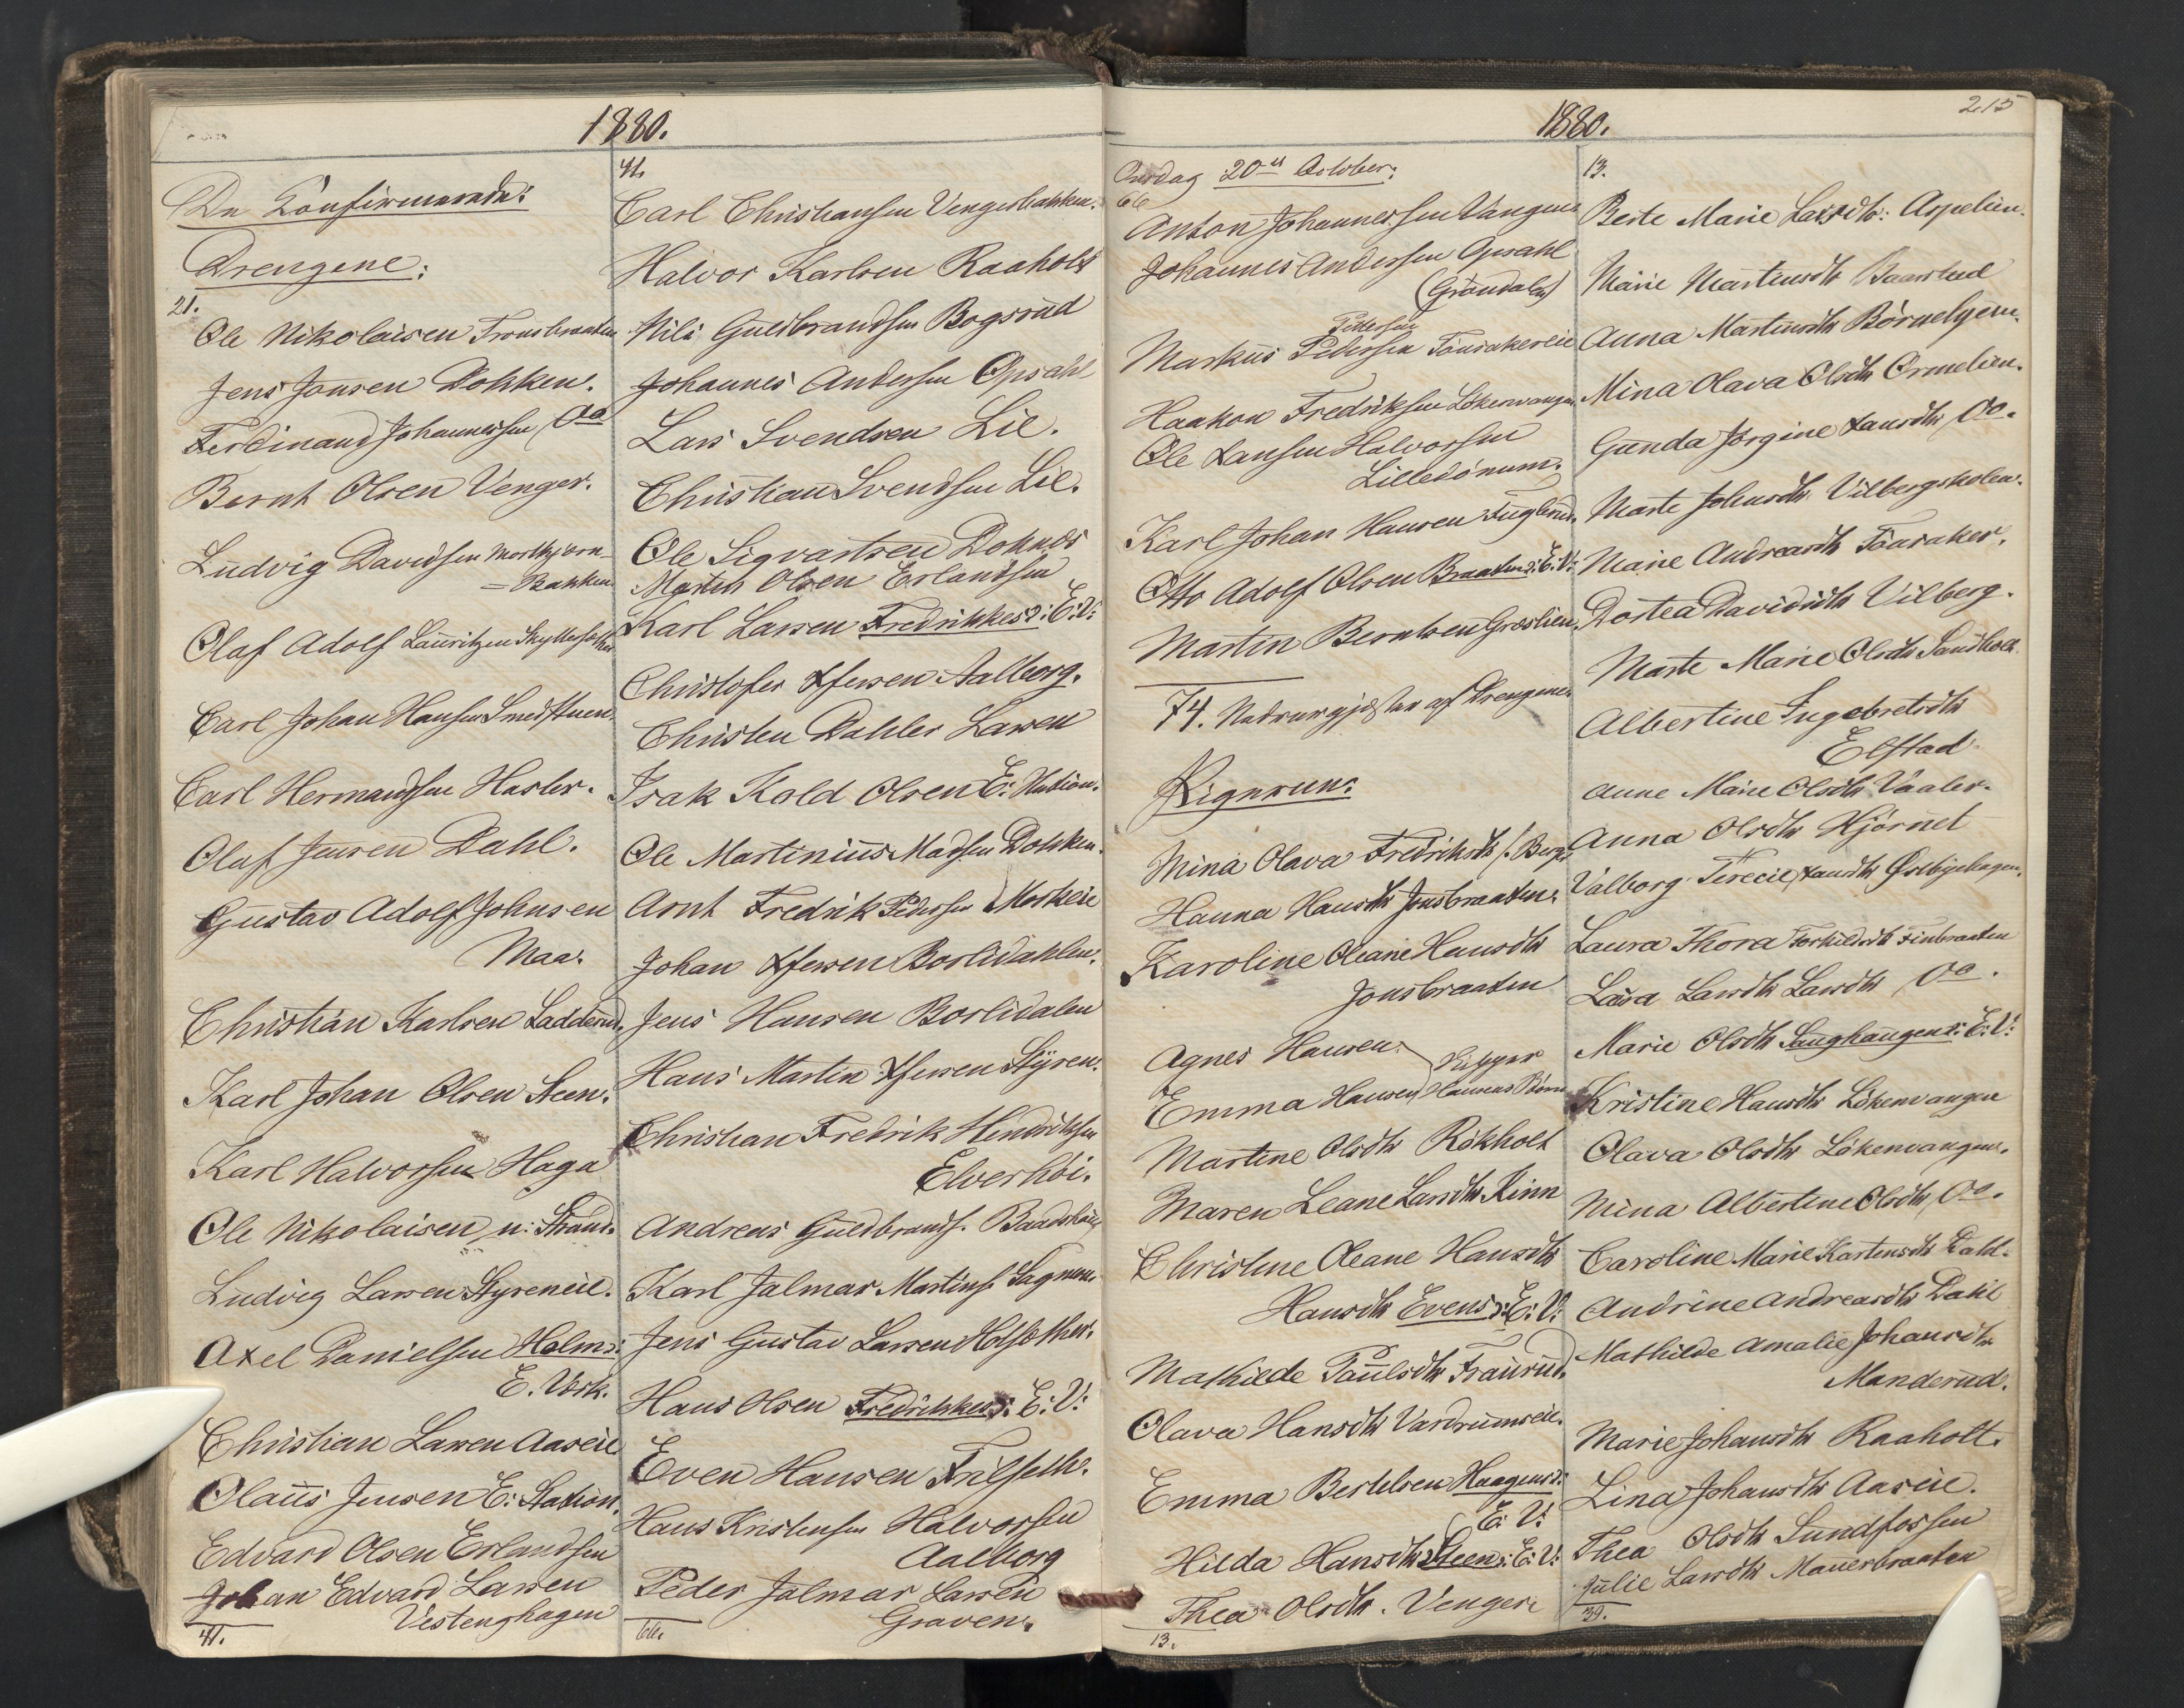 1880.
De Konfirmerede:
Drengene:
21.
Ole Nikolaisen
Jens Jonsen Dokken.
Ferdinand Johannessen Do
Bernt Olsen Venger.
Ludvig Davidsen
= Bakken
Olaf Adolf Lauritzen
Carl Johan Hansen Smedstuen
Carl Hermandsen Hasler.
Oluf Jensen Dahl.
Gustav Adolf Johnsen
Maa.
Christian Karlsen Ladderud.
Karl Johan Olsen Steen.
Karl Halvorsen Haga
Ole Nikolaisen n: Strand.
Ludvig Larsen Styreneie.
Axel Danielsen Holms:
E. Værk.
Christian Larsen Aaseie
Olaus Jensen E: Station.
Edvard Olsen Erlandsen
Johan Edvard Larsen
Vestenghagen
41.
41.
Carl Christiansen Vengerbakken.
Halvor Karlsen Raaholt
Nils Guldbrandsen Bogsrud
Johannes Andersen Opsahl
Lars Svendsen Lie.
Christian Svendsen Lie.
Ole Sigvartsen Doknes
Martin Olsen Erlandsen
Karl Larsen Fredrikkes: E:V:
Christofer Iversen Aalborg.
Christen Dahler Larsen
Isak Kold Olsen E: Station.
Ole Martinius Madsen Dokken.
Arnt Fredrik Pedersen Morkeie
Johan Iversen Borlidahlen.
Jens Hansen Borlidalen
Hans Martin Iversen Styren.
Christian Fredrik Hendriksen
Elverhöi.
Andreas Guldbrands.
Karl Jalmar Martins. Sagmoen
Jens Gustav Larsen
Hans Olsen Fredrikkes: E: V:
Even Hansen Frilseth.
Hans Kristensen Halvorsen
Aalborg
Peder Jalmar Larsen
Graven.
66.
1880.
215
Onsdag 20de October:
66
Anton Johannessen Vangen
Johannes Andersen Opsahl
(Gröndalen)
Pettersen
Markus Pedersen Tönsakereie
Haakon Fredriksen Lökenvangen
Ole Larsen Halvorsen
Lilledönnum.
Karl Johan Hansen Fuglerud.
Otto Adolf Olsen Braatens: E:V:
Martin Berntsen Graslien.
74. Nadvergjester af Drengene
Pigerne:
Mina Olava Fredriksdtr /: Berg.
Hanna Hansdtr Jonsbraaten.
Karoline Oleane Hansdtr
Jonsbraaten
Agnes Hansen
Emma Hansen
Hansens Börn
Martine Olsdtr Rökholt
Maren Leane Larsdtr Finn
Christine Oleane Hansdtr
Hansdtr Evens: E: V:
Mathilde Paulsdtr Traurud.
Olava Hansdtr Vardrumseie.
Emma Bertelsen Haagens:
E: V:
Hilda Hansdtr Steen: E: V:
Thea Olsdtr. Venger.
13.
13.
Berte Marie Larsdtr: Aspelien.
Marie Martinsdtr Baarslud
Anna Martinsdtr Börnelyren.
Mina Olava Olsdtr Ormelien.
Gunda Jörgine Larsdtr Do.
Marte Johnsdtr Vilbergskolen.
Marie Andreasdtr Tönsaker.
Dortea Davidsdtr Vilberg.
Marte Marie Olsdtr Sandholt.
Albertine Ingebretsdtr
Elstad
Anne Marie Olsdtr Vaaler.
Anna Olsdtr Hjörnet
Valborg Terecie Larsdtr Østbyehagen.
Laura Thora Torkildsdtr Finbraaten
Laura Larsdtr Larsdtr Do.
Marie Olsdtr Langhaugens: E: V:
Kristine Hansdtr Lökenvangen
Olava Olsdtr Lökenvangen.
Mina Albertine Olsdtr Do.
Caroline Marie Karstensdtr Dahl.
Andrine Andreasdtr Dahl
Mathilde Amalie Johansdtr
Manderud.
Marie Johansdtr Raaholt.
Lina Johansdtr Aaseie.
Thea Olsdtr Sundfossen
Julie Larsdtr Maurbraaten
39.